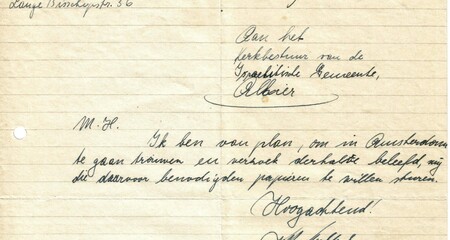 Lange Bisschopstr. 56
Aan het
Kerkbestuur van de
Israelitische Gemeente,
Alhier
M. H.
Ik ben van plan, om in Amsterdam
te gaan trouwen en verzoek derhalve beleefd, mij
die daarvoor benodigden papieren te willen sturen.
Hoogachtend!